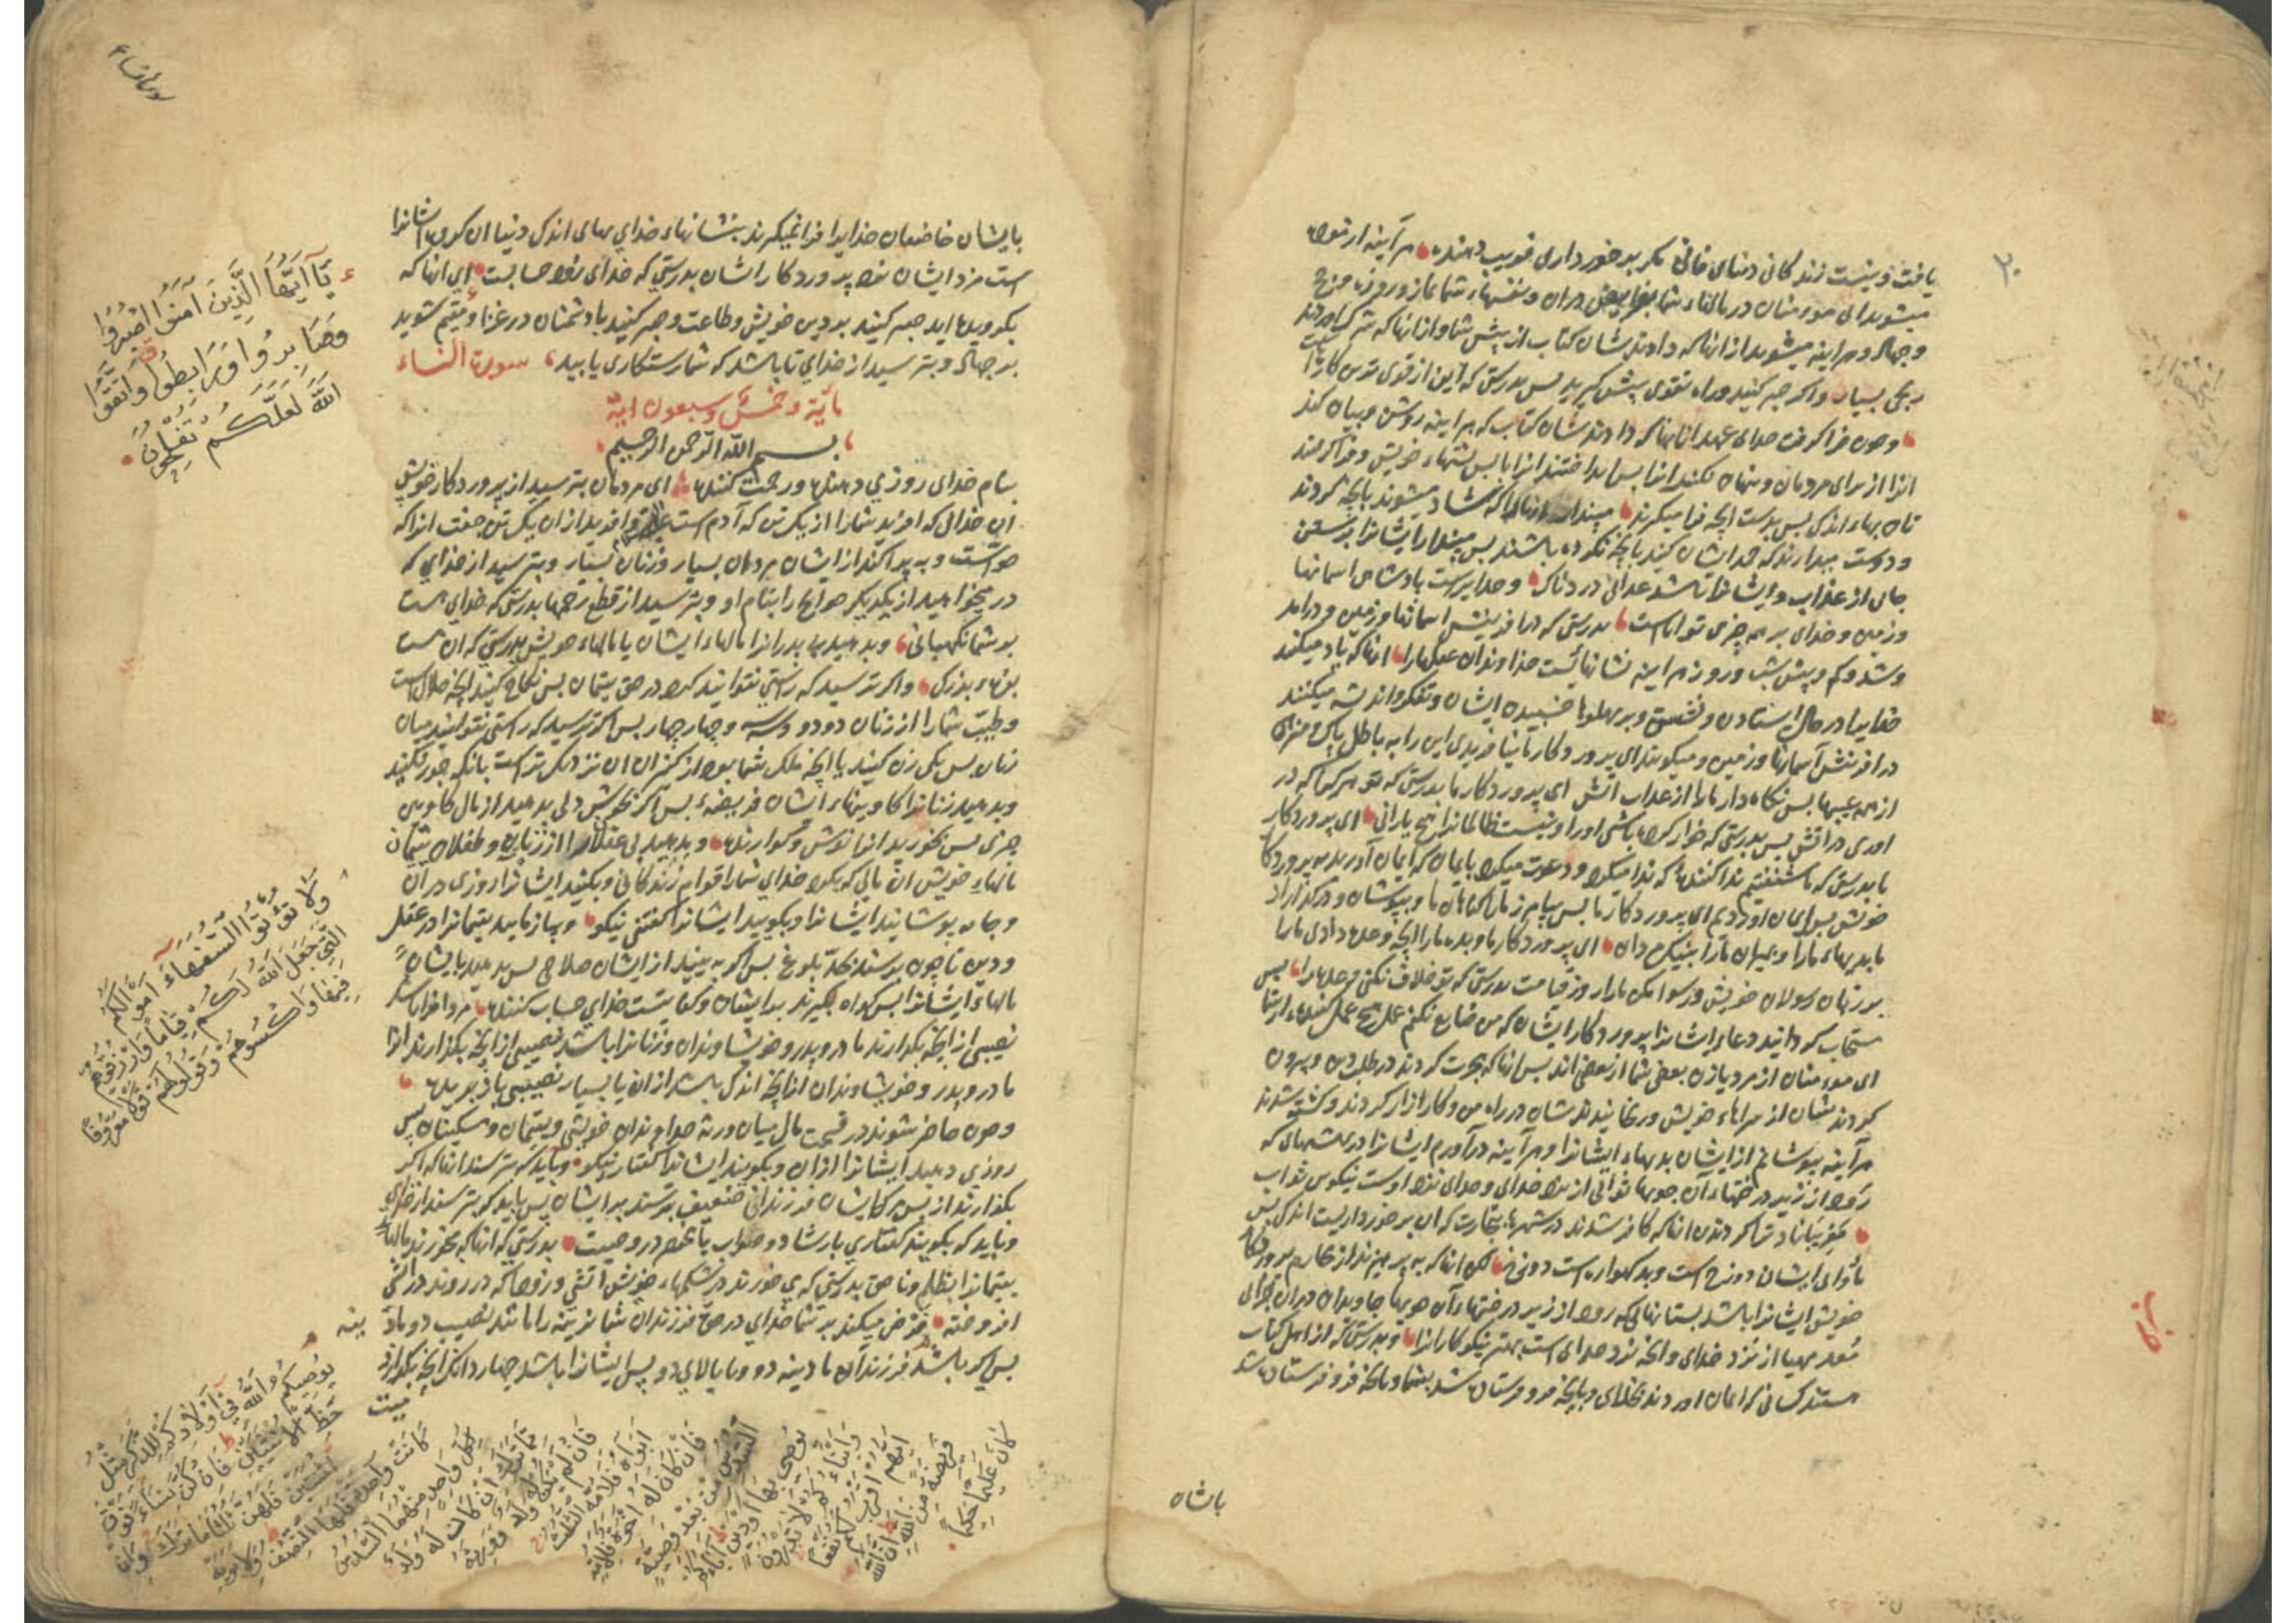 ۲۰
یافت و نیست زندگانی دنیای فانی مگر برخورداری فریب دهنده هر آینه آزموده
میشوید ای مومنان در مالهاء شما و نفسهاء شما بنماز و روزه و حج
و جهاد و هر اینه میشنوید از انانکه دادندشان کتاب از پیش شما و از انانکه شرک اوردند
رنجی بسیار و اگر صبر کنید و راه تقوی پیش گیرید پس بدرستی که این از قوی ترین کارهاست
و چون فرا گرفت خدای عهد انانها که دادندشان کتاب که هر اینه روشن و بیان کنند
انرا از برای مردمان و پنهان نکنند انرا پس بینداختند انرا با پس پشتهاء خویش و فرا گرفتند
بان بهاء اندک پس بدست انچه فرا میگیرند مپندار انانرا که شاد میشوند بانچه کردند
و دوست میدارند که حمد ایشان کنند بانچه نکرده باشند پس مپندار ایشانرا برستن
جای از عذاب و ایشانرا باشد عذابی دردناک و خدایراست پادشاهی اسمانها
و زمین و خدای بر همه چیزی تواناست بدرستی که در افرینش اسمانها و زمین و در امد
و شد و کم و بیش شب و روز هر اینه نشانهائیست خداوندان عقلها را انانکه یاد میکنند
خدایرا در حال ایستادن و نشستن و بر پهلوها خسبیده ایشان و تفکر و اندیشه میکنند
در افرینش آسمانها و زمین و میگویند ای پروردگار ما نیافریدی این را به باطل پاک و منزهی
از همه عیبها پس نگاه دار ما را از عذاب اتش ای پروردگار ما بدرستی که تو هر کرا که در
اوردی در اتش پس بدرستی که خوار کرده باشی او را و نیست ظالمانرا هیچ یارانی ای پروردگار
ما بدرستی که ما شنفتیم ندا کننده که ندا میکرد و دعوت میکرد بایمان که ایمان آورید به پروردگار
خویش پس ایمان آوردیم ای پروردگار ما پس بیامرز ما را گناهان ما و بپوشان و درگذار از
ما بدیهاء ما را و بمیران ما را بنیک مردان ای پروردگار ما و بده ما را انچه وعده دادی ما را
بر زبان رسولان خویش و رسوا مکن ما را روز قیامت بدرستی که تو خلاف نکنی وعده را پس
مستجاب گردانید دعاء ایشانرا پروردگار ایشان که من ضایع نکنم عمل هیچ عمل کننده از شما
ای مومنان از مرد یا زن بعضی شما از بعضی اند پس انانکه هجرت کردند در طلب دین و بیرون
کردندشان از سراهاء خویش و رنجانیدندشان در راه من و کارزار کردند و کشته شدند
هر آینه بپوشانم از ایشان بدیهاء ایشانرا و هر آینه در آورم ایشانرا در بهشتهای که
رود از زیر درختهاء آن جویها ثوابی از نزد خدای و خدای نزد اوست نیکوی ثواب
مفریباناد ترا گردیدن انانکه کافر شدند در شهرها بتجارت که ان برخورداریست اندک پس
مأوای ایشان دوزخ است و بد گهواره است دوزخ لکن انانکه بپرهیزند از محارم پروردگار
خویش ایشانرا باشد بستانهای که رود از زیر درختهاء آن جویها جاویدان دران جزای
معد و مهیا از نزد خدای و انچه نزد خدای است بهتر نیکوکارانرا و بدرستی که از اهل کتاب
هستند کسانی که ایمان اورند بخدای و بانچه فرو فرستاده شد بشما و بانچه فرو فرستاده شد
باشان
سورة النساء
بایشان خاضعان خدایرا فرا نمیگیرند بنشانهاء خدای بهای اندک دنیا ان گروه ایشانرا
است مزد ایشان نزد پروردگار ایشان بدرستی که خدای زود حسابست ای انانکه
بگرویده اید صبر کنید بر دین خویش و طاعت و صبر کنید با دشمنان در غزا و مقیم شوید
بر جهاد و بترسید از خدای تا باشد که شما رستکاری یابید سورة النساء
مایة و خمس و سبعون ایة
بسم الله الرحمن الرحیم
بنام خدای روزی دهنده و رحمت کننده ای مردمان بترسید از پروردگار خویش
ان خدائی که افرید شما را از یک تن که آدم است و افرید از ان یک تن جفت انرا که
حواست و به پراکند از ایشان مردمان بسیار و زنان بسیار و بترسید از خدای که
در میخواهید از یکدیگر حوایج را بنام او و بترسید از قطع رحمها بدرستی که خدای هست
بر شما نگهبانی و بدهید بی پدرانرا مالهاء ایشان با مالهاء خویش بدرستی که ان هست
بزهء بزرک و اگر ترسید که راستی نتوانید کرد در حق یتیمان پس نکاح کنید انچه حلال است
و طیب شما را از زنان دو دو و سه و چهار چهار پس اگر ترسید که راستی نتوانید میان
زنان پس یکی زن کنید یا انچه ملک شما بود از کنیزان ان نزدیک تر است بانکه جور نکنید
و بدهید زنانرا کاوینهاء ایشان فریضهء پس اگر بخوش دلی بدهید از مال کاوین
چیزی پس بخورید انرا نوش و گوارنده و بدهید بی عقلانرا از زنان و طفلان یتیمان
مالهاء خویش ان مالی که بکرد خدای شما را قوام زندگانی و بکنید ایشانرا روزی دران
و جامه بپوشانید ایشانرا و بگویید ایشانرا گفتنی نیکو و بیازمایید یتیمانرا در عقل
و دین تا چون برسند بحد بلوغ پس اگر به بینید از ایشان صلاحی پس بدهید بایشان
مالهاء ایشانرا پس گواه بگیرند بر ایشان و کفایتست خدای حساب کننده مردانرا باشد
نصیبی از انچه بگذارند مادر و پدر و خویشاوندان و زنانرا باشد نصیبی از انچه بگذارند انرا
مادر و پدر و خویشاوندان از انچه اندک باشد از ان یا بسیار نصیبی بازبریده
و چون حاضر شوند در قسمت مال میان ورثه خداوندان خویشی و یتیمان و مسکینان پس
روزی دهید ایشانرا از ان و بگویند ایشانرا گفتار نیکو و باید که بترسند انانکه اگر
بگذارند از پس مرگ ایشان فرزندانی ضعیف بترسند بر ایشان پس باید که بترسند از خدای
و باید که بگویند گفتاری با رشاد و صواب با محتضر در وصیت بدرستی که انانکه میخورند مالهاء
یتیمانرا بظلم و ناحق بدرستی که می خورند در شکمهاء خویش اتشی و زود باشد که در روند در اتش
افروخته فرض میکند بر شما خدای در حق فرزندان شما نرینه را مانند نصیب دو مادینه
پس اگر باشند فرزندان مادینه دو و ما بالای دو پس ایشانرا باشد چهار دانک انچه بگذارد
میت
یَا أَیُّهَا الَّذِینَ آمَنُوا اصْبِرُوا
وَصَابِرُوا وَرَابِطُوا وَاتَّقُوا
اللَّهَ لَعَلَّکُمْ تُفْلِحُونَ
وَلَا تُؤْتُوا السُّفَهَاءَ أَمْوَالَکُمُ
الَّتِی جَعَلَ اللَّهُ لَکُمْ قِیَامًا وَارْزُقُوهُمْ
فِیهَا وَاکْسُوهُمْ وَقُولُوا لَهُمْ قَوْلًا مَعْرُوفًا
یُوصِیکُمُ اللَّهُ فِی أَوْلَادِکُمْ لِلذَّکَرِ مِثْلُ
حَظِّ الْأُنْثَیَیْنِ فَإِنْ کُنَّ نِسَاءً فَوْقَ
اثْنَتَیْنِ فَلَهُنَّ ثُلُثَا مَا تَرَکَ وَإِنْ
کَانَتْ وَاحِدَةً فَلَهَا النِّصْفُ وَلِأَبَوَیْهِ
لِکُلِّ وَاحِدٍ مِنْهُمَا السُّدُسُ
مِمَّا تَرَکَ إِنْ کَانَ لَهُ وَلَدٌ
فَإِنْ لَمْ یَکُنْ لَهُ وَلَدٌ وَوَرِثَهُ
أَبَوَاهُ فَلِأُمِّهِ الثُّلُثُ
فَإِنْ کَانَ لَهُ إِخْوَةٌ فَلِأُمِّهِ
السُّدُسُ مِنْ بَعْدِ وَصِیَّةٍ
یُوصِی بِهَا أَوْ دَیْنٍ آبَاؤُکُمْ
وَأَبْنَاؤُکُمْ لَا تَدْرُونَ
أَیُّهُمْ أَقْرَبُ لَکُمْ نَفْعًا
فَرِیضَةً مِنَ اللَّهِ إِنَّ اللَّهَ
کَانَ عَلِیمًا حَکِیمًا